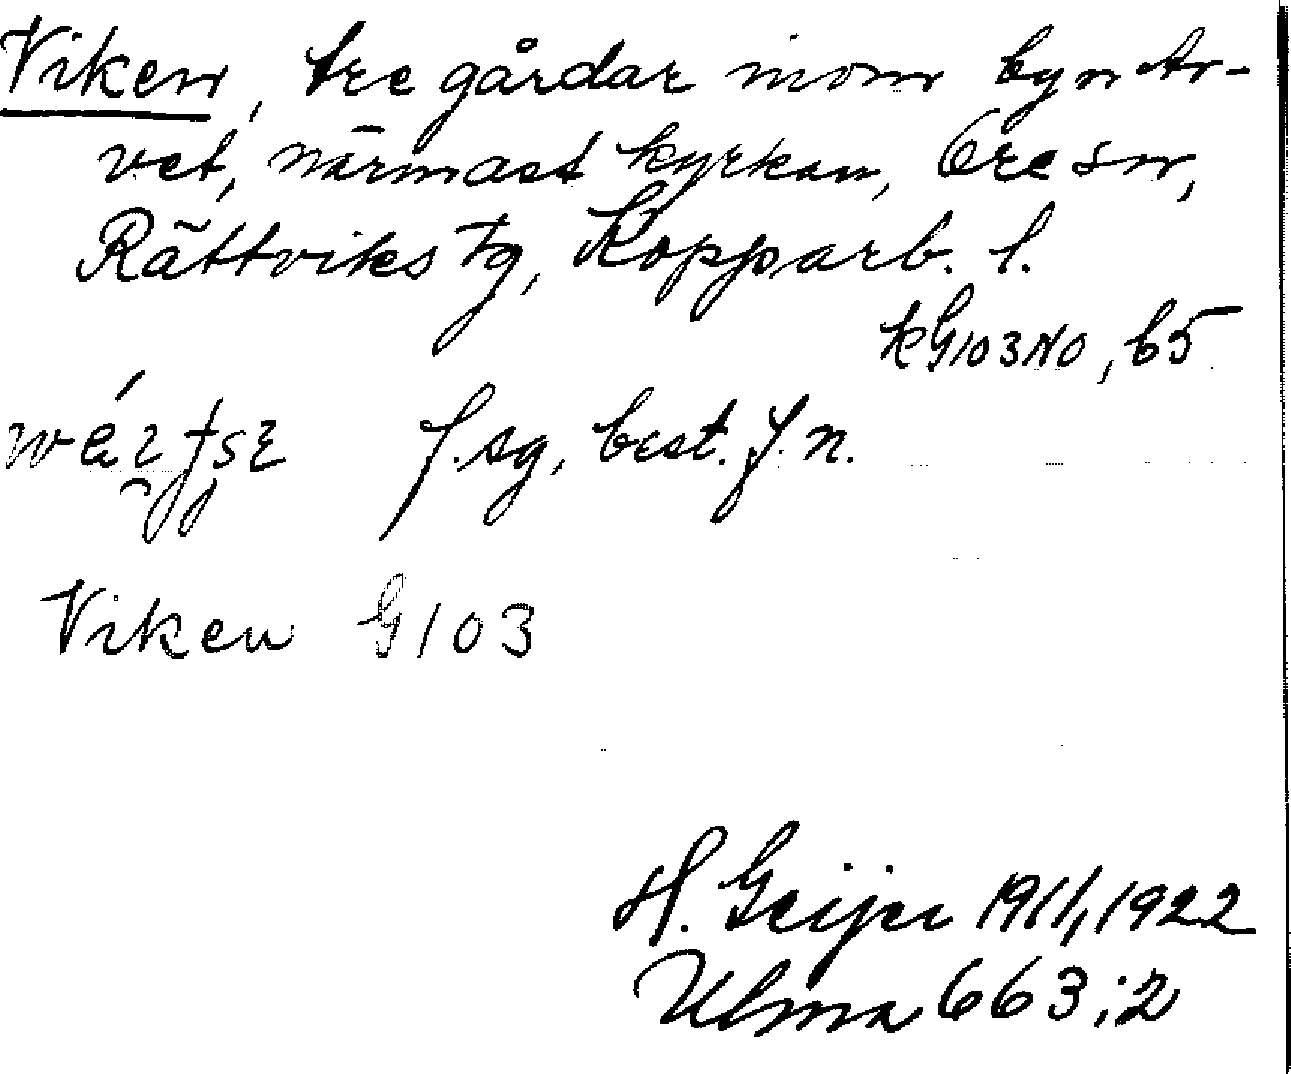 Viken, tre gårdar inom byn Ar-
vet, närmast kyrkan, Ore sn,
Rättviks tg, Kopparb. l.
kG103NO, b5
f. sg, best. f. n.
Viken G103
H. Geijer 1911, 1922
Ulma 663:2